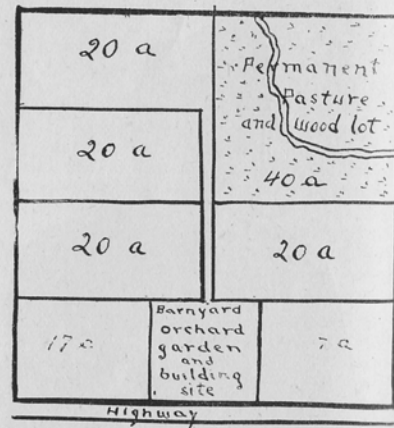 20 a
Permanent
Pasture
and wood lot
40 a
20 a
20 a
20 a
17 a
Barnyard
orchard
garden
and
building
site
7 a
Highway